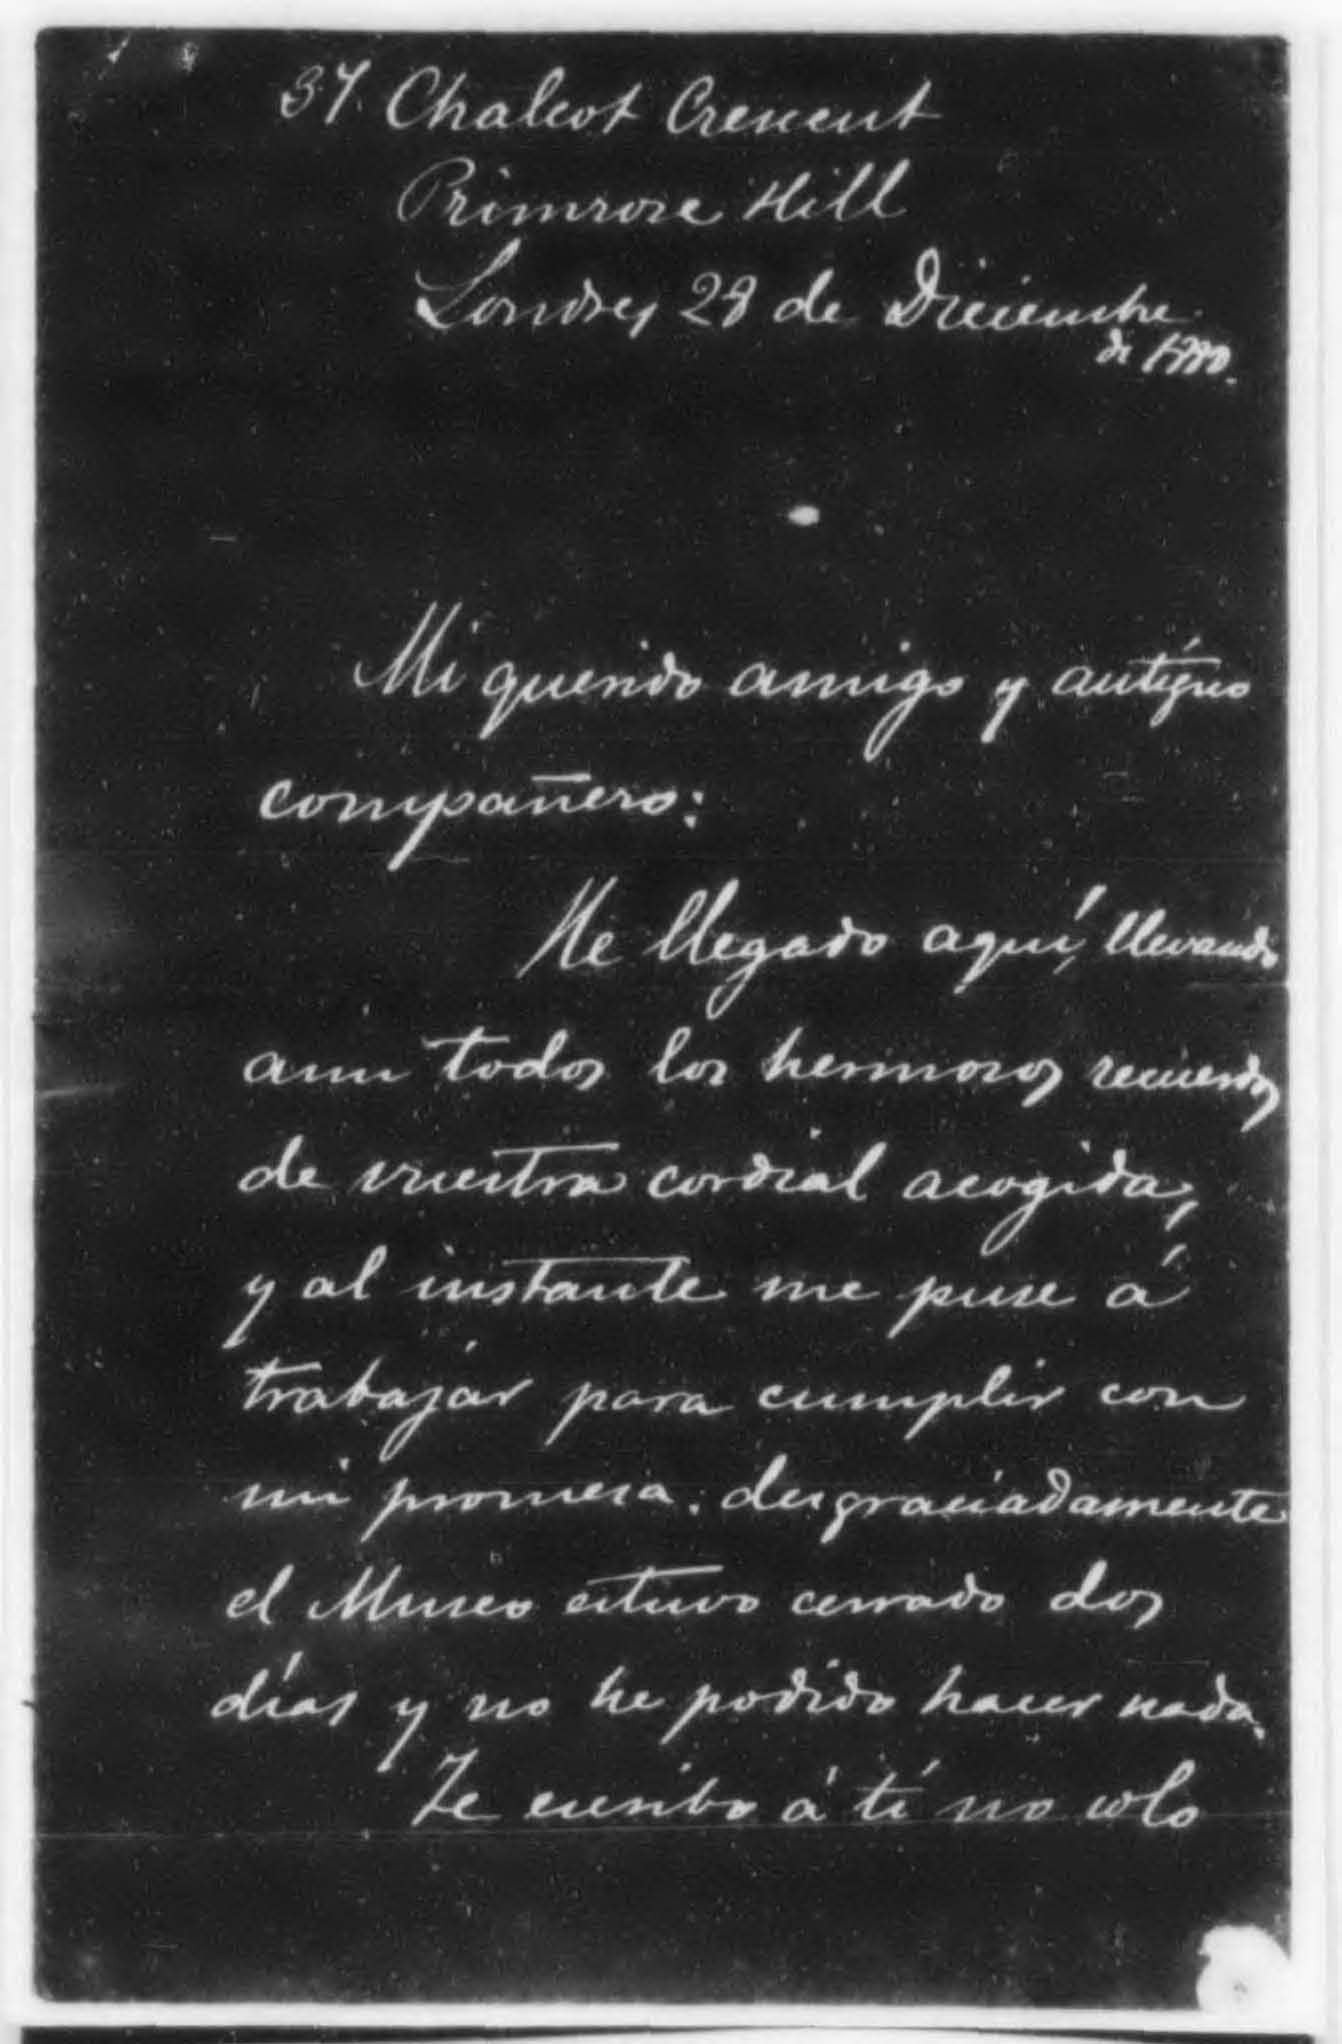 37 Chalcot Crescent
Primrose Hill
Londres 28 de Diciembre
de 1880.
Mi querido amigo y antíguo
compañero:
He llegado aquí, llevando
aun todos los hermosos recuerdos
de vuestra cordial acogida,
y al instante me puse á
trabajar para cumplir con
mi promesa. desgraciadamente
el Museo estuvo cerrado dos
días y no he podido hacer nada.
Te escribo á tí no solo